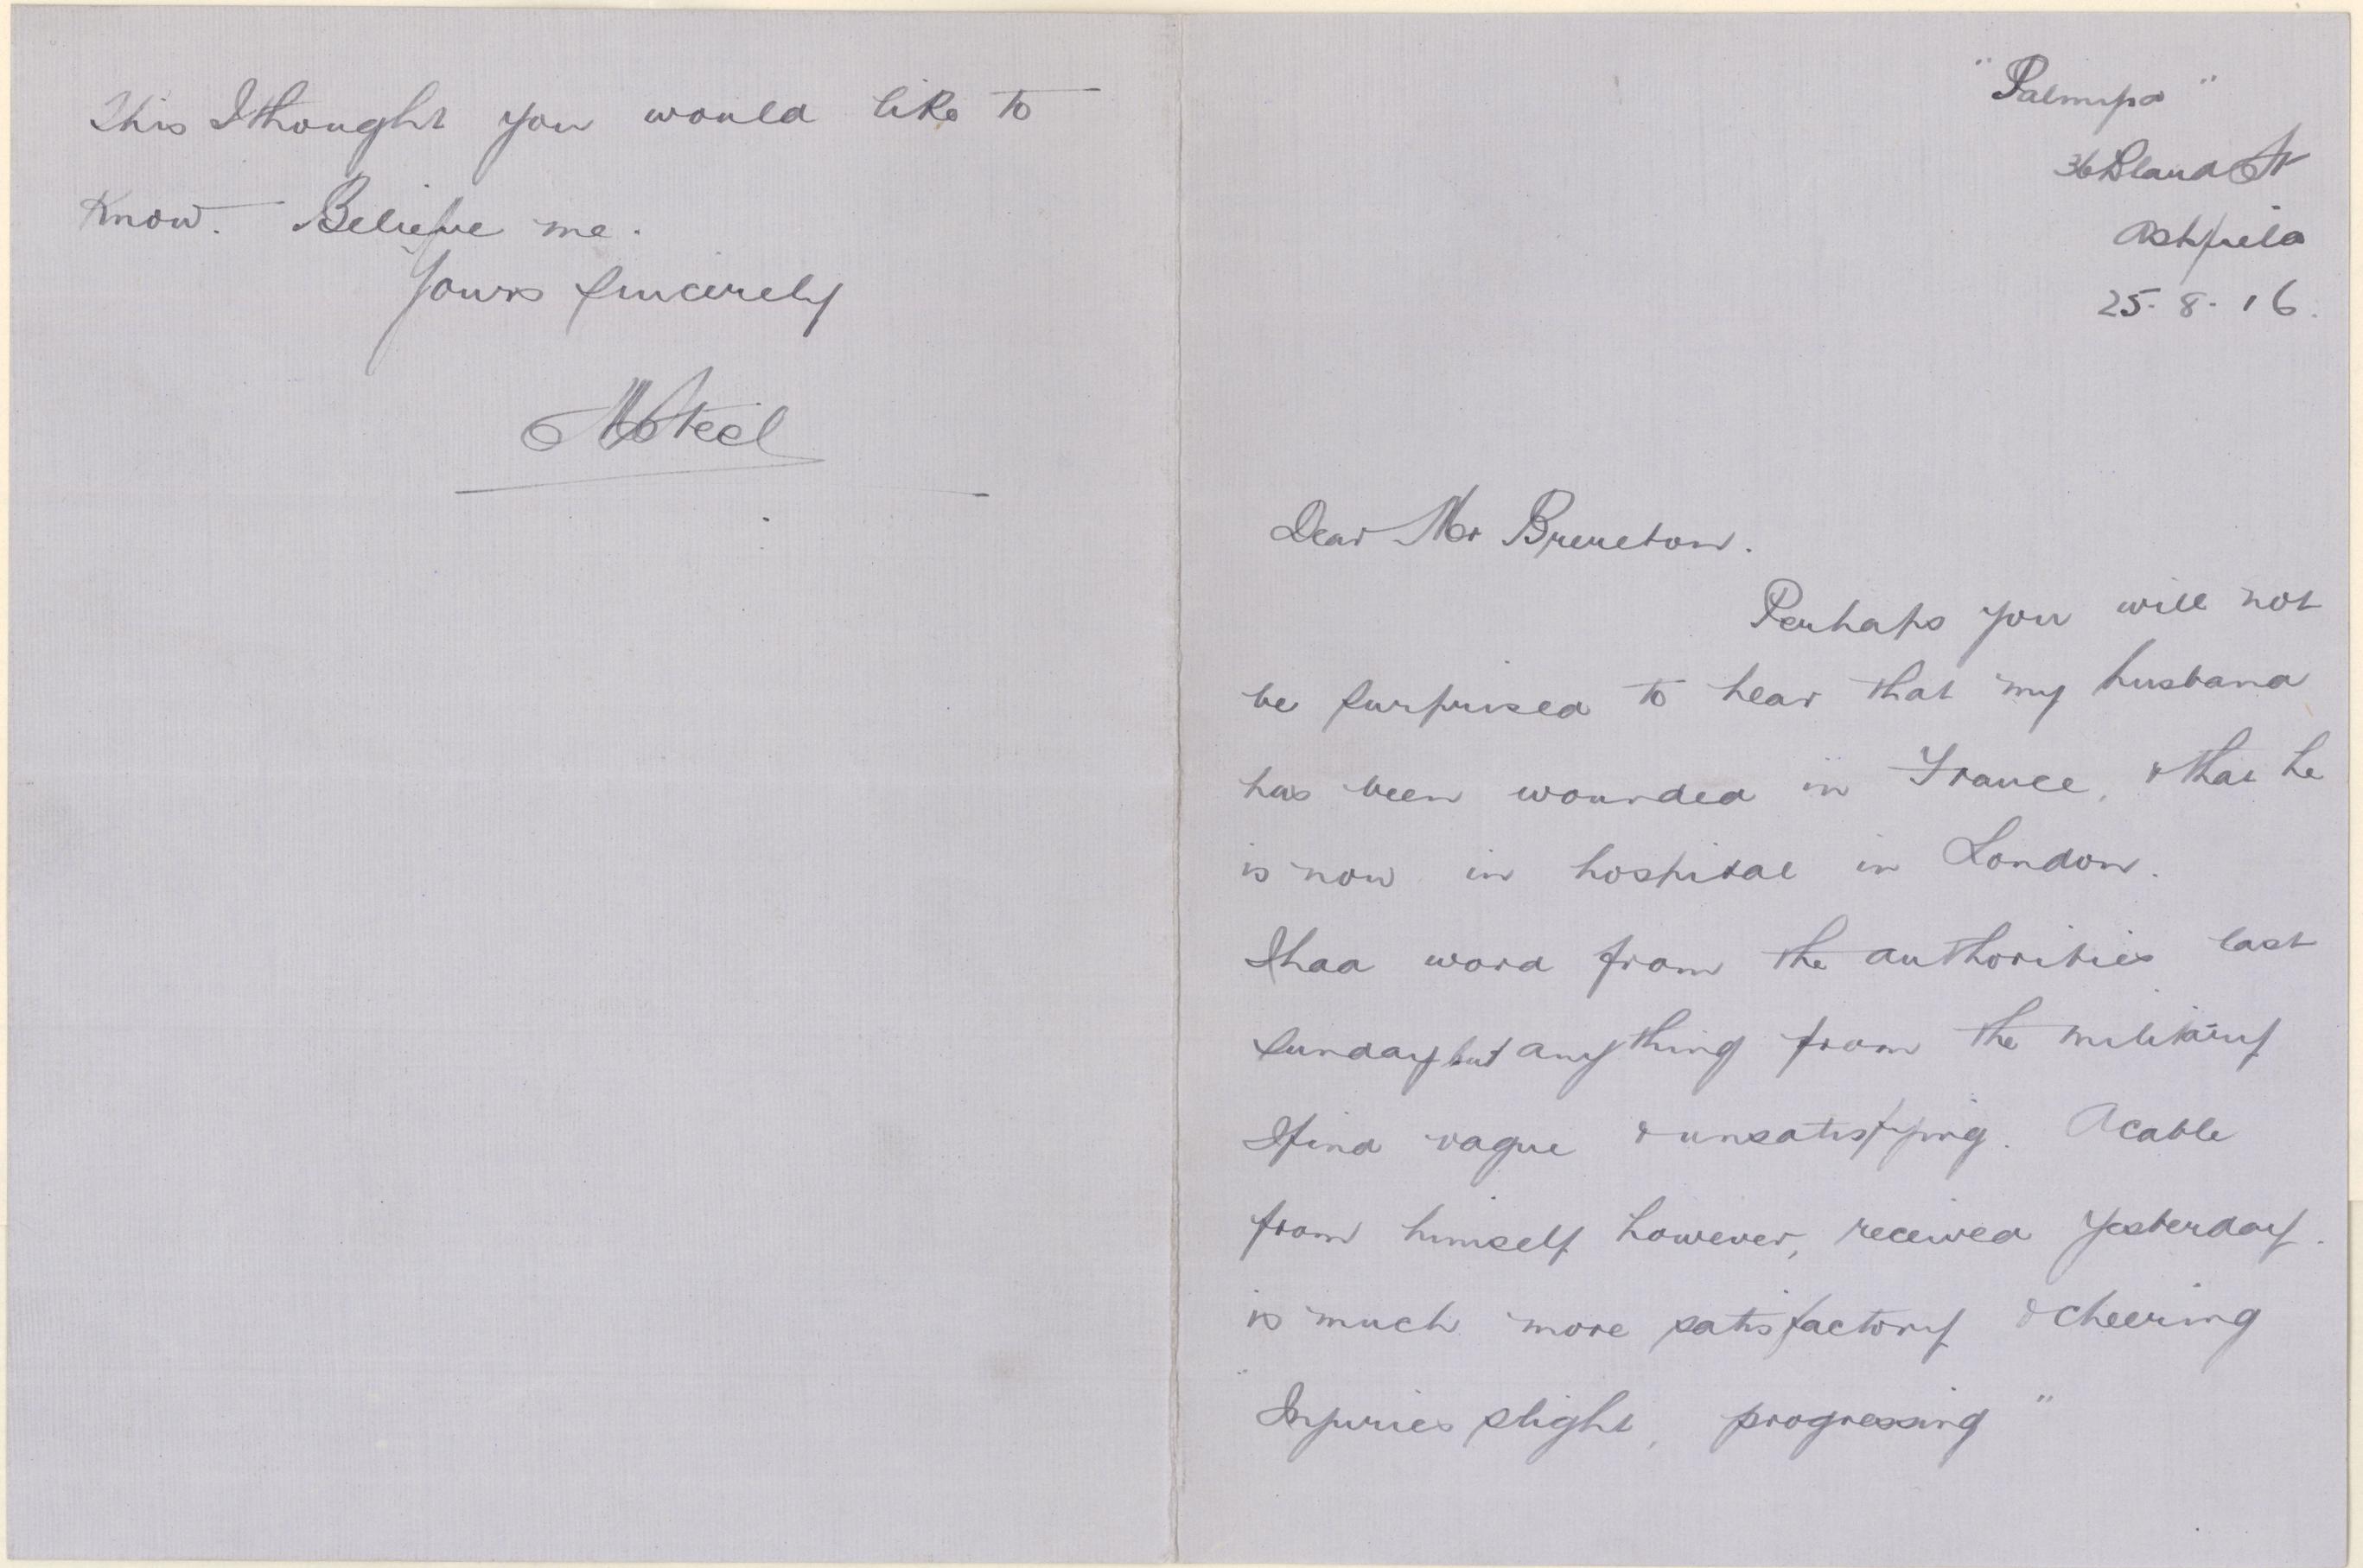 "Palmyra"
36 Bland St
Ashfield
25. 8. 16.
Dear Mr Brereton.
Perhaps you will not
be surprised to hear that my husband
has been wounded in France, & that he
is now in hospital in London.
I had word from the authorities last
Sunday but anything from the military
I find vague & unsatisfying. A cable
from himself however, received yesterday.
is much more satisfactory & cheering
"Injuries slight, progressing"
This I thought you would like to
know. Believe me.
Yours sincerely
M Steel